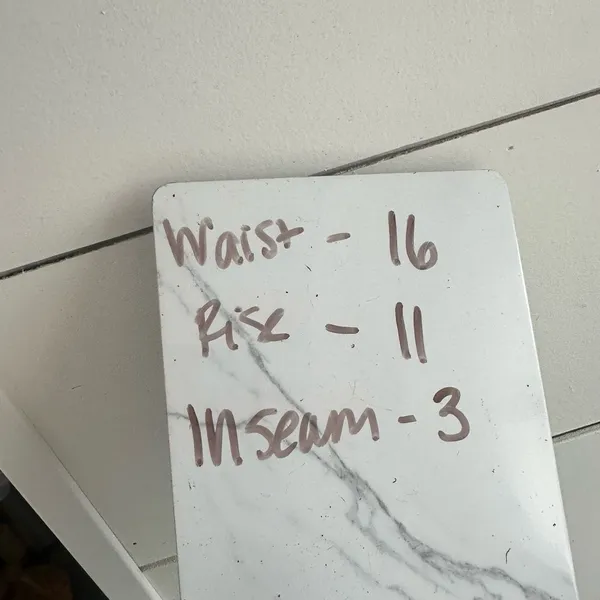 Waist - 16
Rise - 11
Inseam - 3